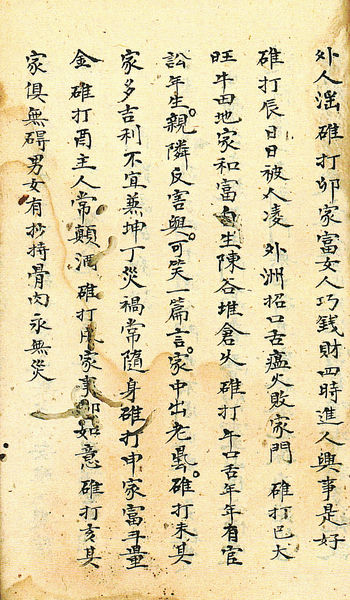 外人淫 碓打卯家富女人巧錢財四時進人興事是好
碓打辰日日被人凌 外洲招口舌瘟火敗家門 碓打巳大
旺牛田地家和富自生陳谷堆倉頭 碓打午口舌年年有官
訟年生親隣反害與可笑一篇言家中出老 碓打未其
家多吉利不宜蒸坤丁災禍常隨身碓打申家富斗量
金 碓打酉主人常顛酒 碓打戌家 如意 碓打亥其
家俱無碍男女有抄持骨肉永無災